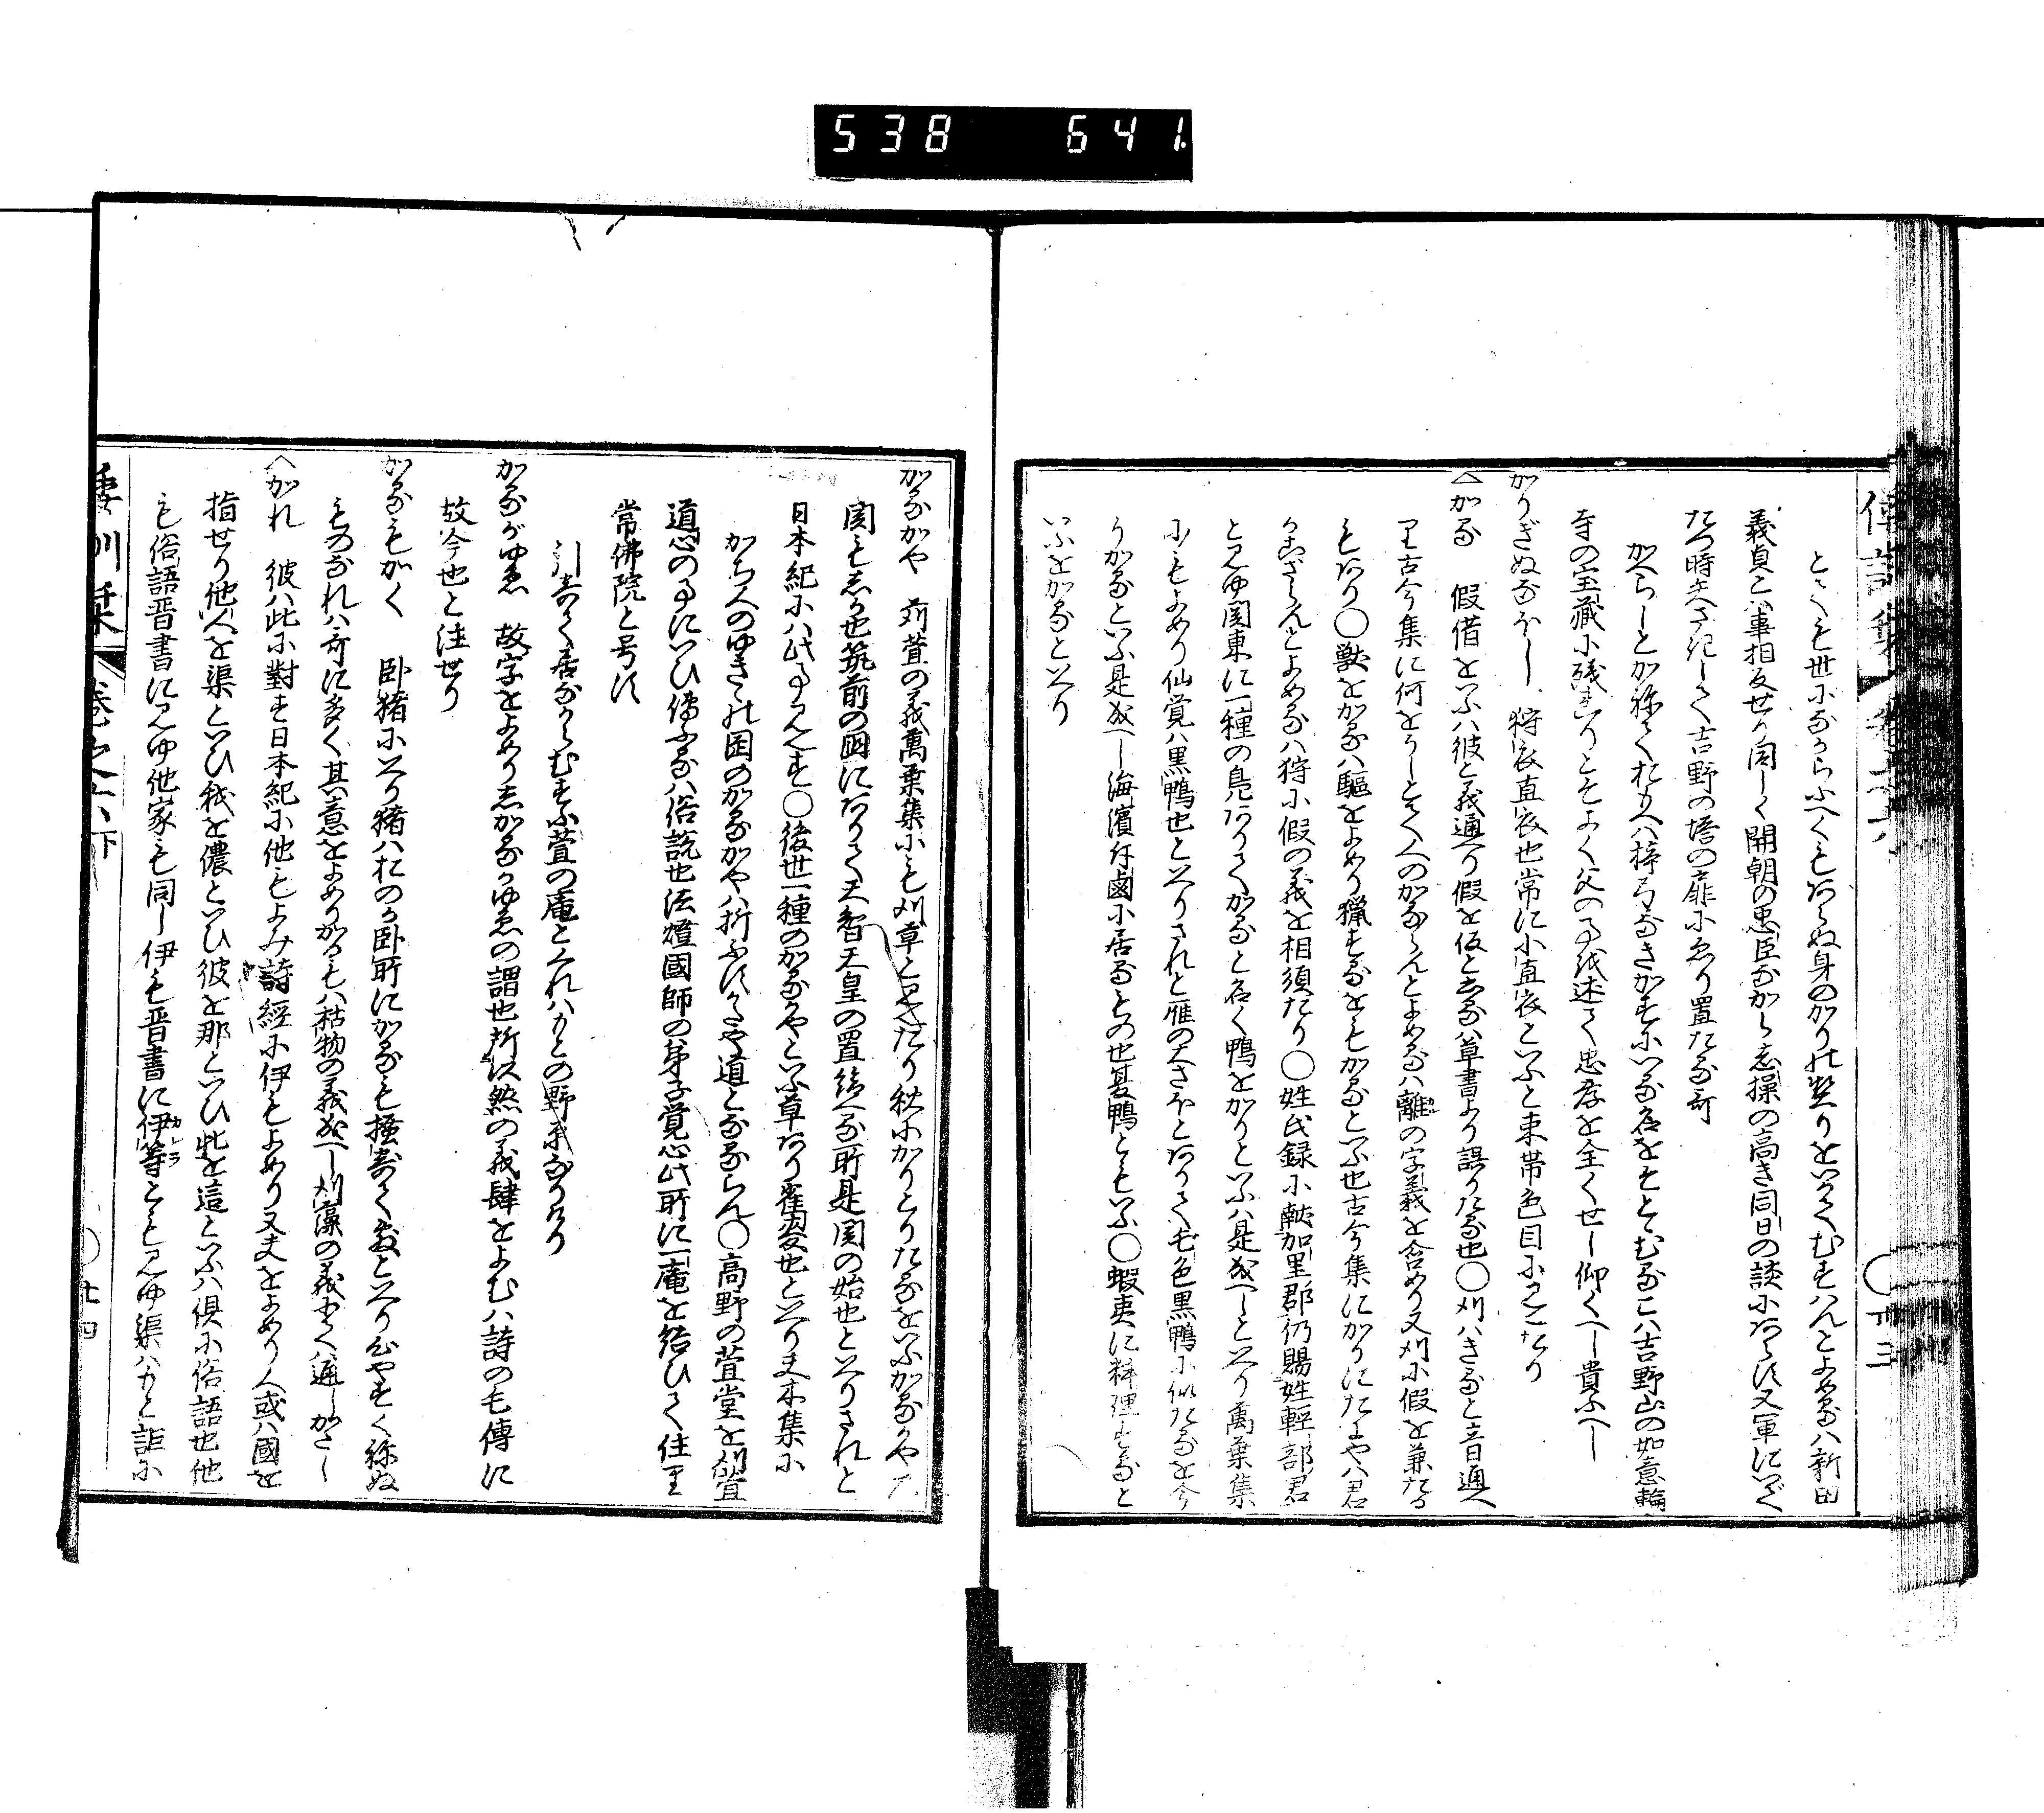 538 641
とても世にながらふべくもあらぬ身のかりの契りをいかでむすばんとよめるハ新田
義貞とハ事相反せり同しく開朝の忠臣ながら志操の高き同日の談にあらず又軍にいづ
たつ時きざはしく吉野の塔の扉にゑり置たる哥
かへらしとかねておもへハ梓弓なきかずにいる名をそとゞむるこハ吉野山の如意輪
寺の宝蔵に残れりとそよく父の子を述て忠孝を全くせし仰くへし貴ふへし
かりぎぬなほし 狩衣直衣也常に小直衣といふと束帯色目に見えたり
△かる 假借をいふハ彼と義通へり假を仮と書るハ草書より誤りたる也○刈ハきると音通へ
り古今集に何をうしとて人のかるらんとよめるハ離の字義を含めり又刈に假を兼たる
もあり○獣をかるハ驅をよめり獵するをもかるといふ也古今集にかりにだにやハ君
かこざらんとよめるハ狩に假の義を相須たり○姓氏録に献加里郡仍賜姓輕部君
と見ゆ関東に一種の鳥ありてかると名く鴨をかりといふハ是成へしといへり萬葉集
にもよめり仙覚ハ黒鴨也といへりされと雁の大さほとありて毛色黒鴨に似たるを今
りかるといふ是成へし海濱斥鹵に居るもの也夏鴨ともいふ○蝦夷に料理するを
いふをかるといへり
かるかや 苅萱の義萬葉集にも刈草と見えたり秋にかりとりたるをいふかるかやの
関もしか也筑前の國にありて天智天皇の置給へる所是関の始也といへりされと
日本紀にハ此事見えず○後世一種のかるかやといふ草あり雀麥也といへり夫木集に
かち人のゆきゝの岡のかるかやハ折ふしてや道となるらん○高野の萱堂を刈萱
道心の事にいひ傳ふるハ俗説也法燈國師の弟子覚心此所に一庵を結ひて住り
常佛院と号す
引よせて居ながらむすふ萱の庵とくれハもとの野原なりけり
かるがゆゑ 故字をよめりしかるがゆゑの謂也所以然の義肆をよむハ詩の毛傳に
故今也と注せり
かるもかく 卧猪にいへり猪ハおのが卧所にかるも掻よせて敷といへりしやすく祢ぬ
ものなれハ哥に多く其意をよめりかるもハ枯物の義成へし刈藻の義にてハ通しかたし
△かれ 彼ハ此に對す日本紀に他もよみ詩經に伊もよめり又夫をよめり人或ハ國を
指せり他人を渠といひ我を儂といひ彼を那といひ此を這といふハ倶に俗語也他
も俗語晋書に見ゆ他家も同し伊も晋書に伊等とも見ゆ渠ハもと詎に
倭訓栞 巻之六下 ○廿四